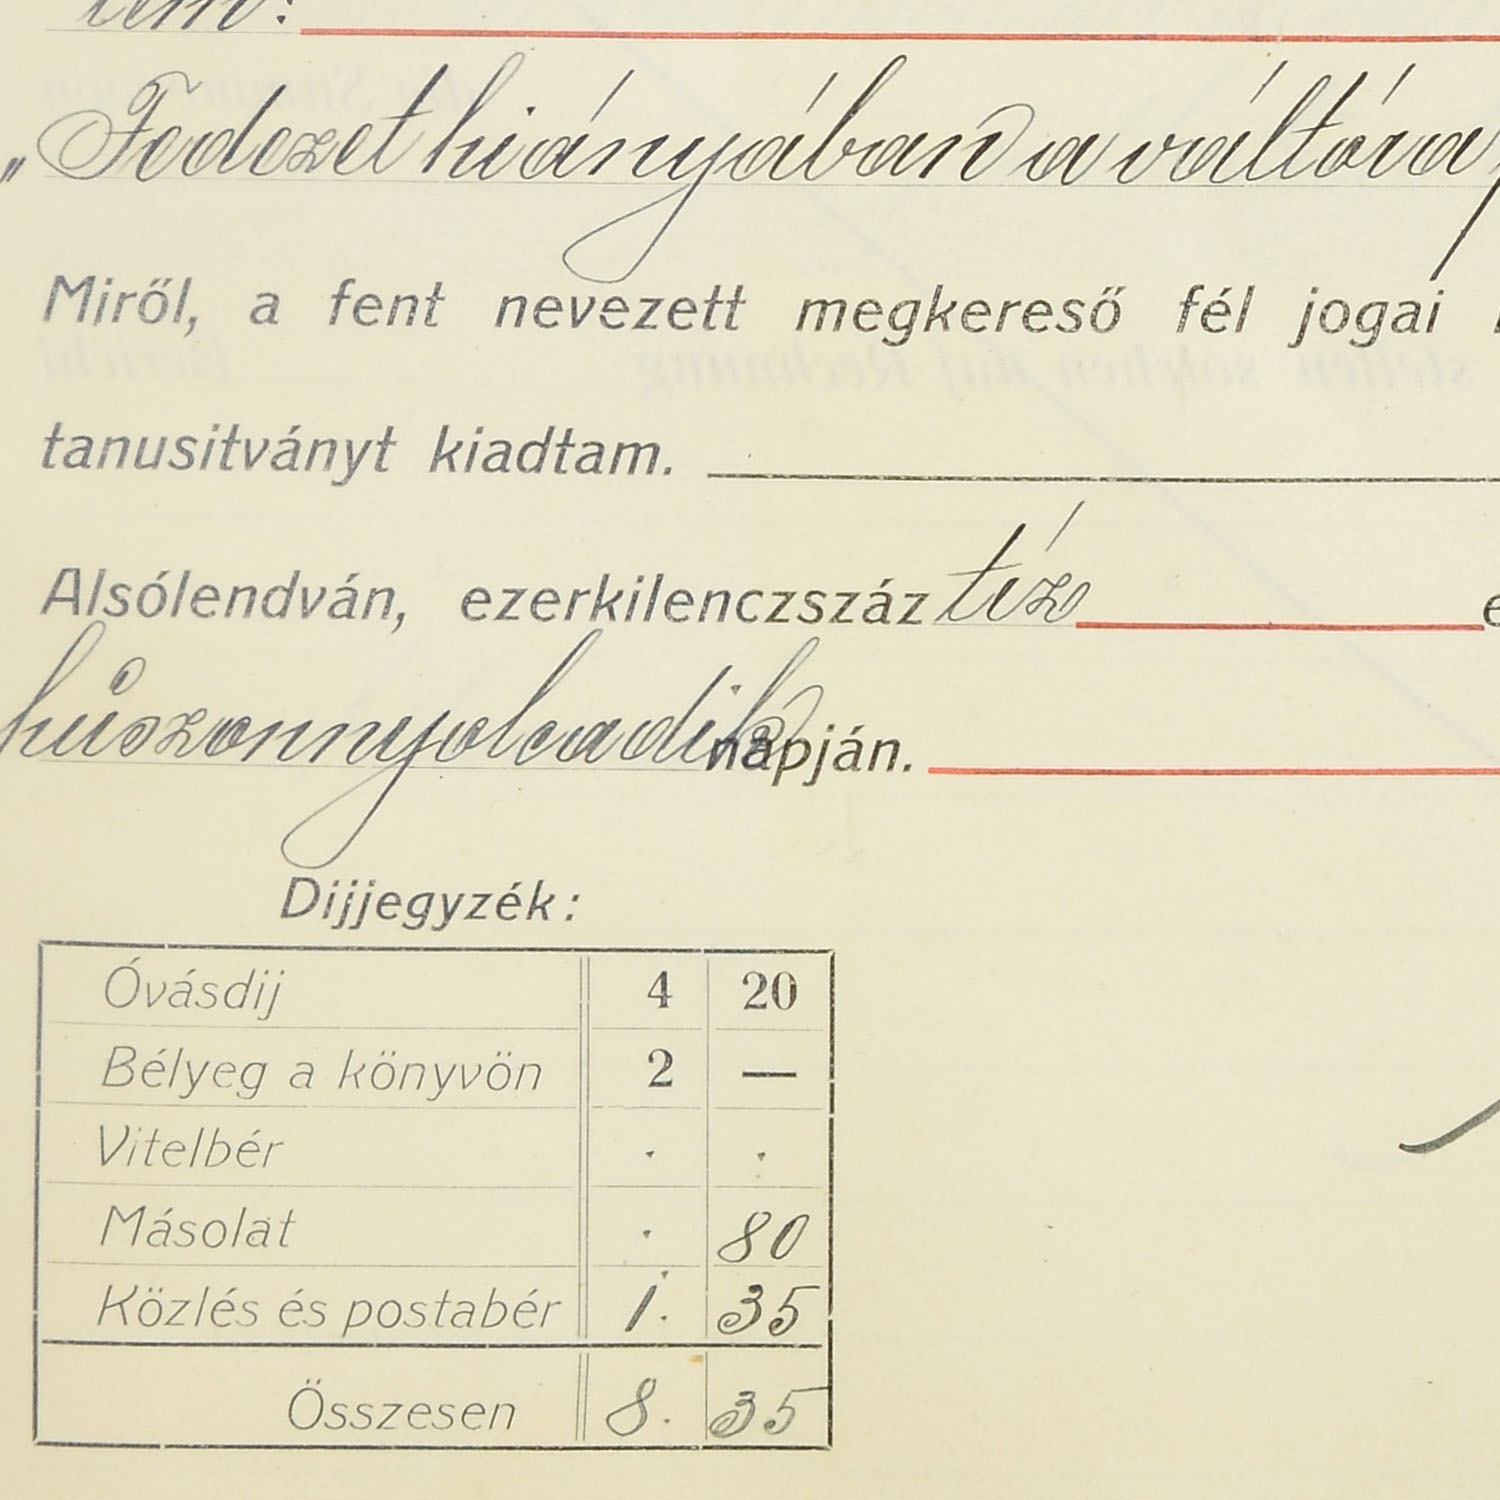 „Fedezet hiányában a váltóra
Miről, a fent nevezett megkereső fél jogai
tanusitványt kiadtam.
Alsólendván, ezerkilenczszáz tíz
húszonnyolcadik napján.
Dijjegyzék:
Óvásdij 4 20
Bélyeg a könyvön 2 —
Vitelbér . .
Másolat . 80
Közlés és postabér 1. 35
Összesen 8. 35